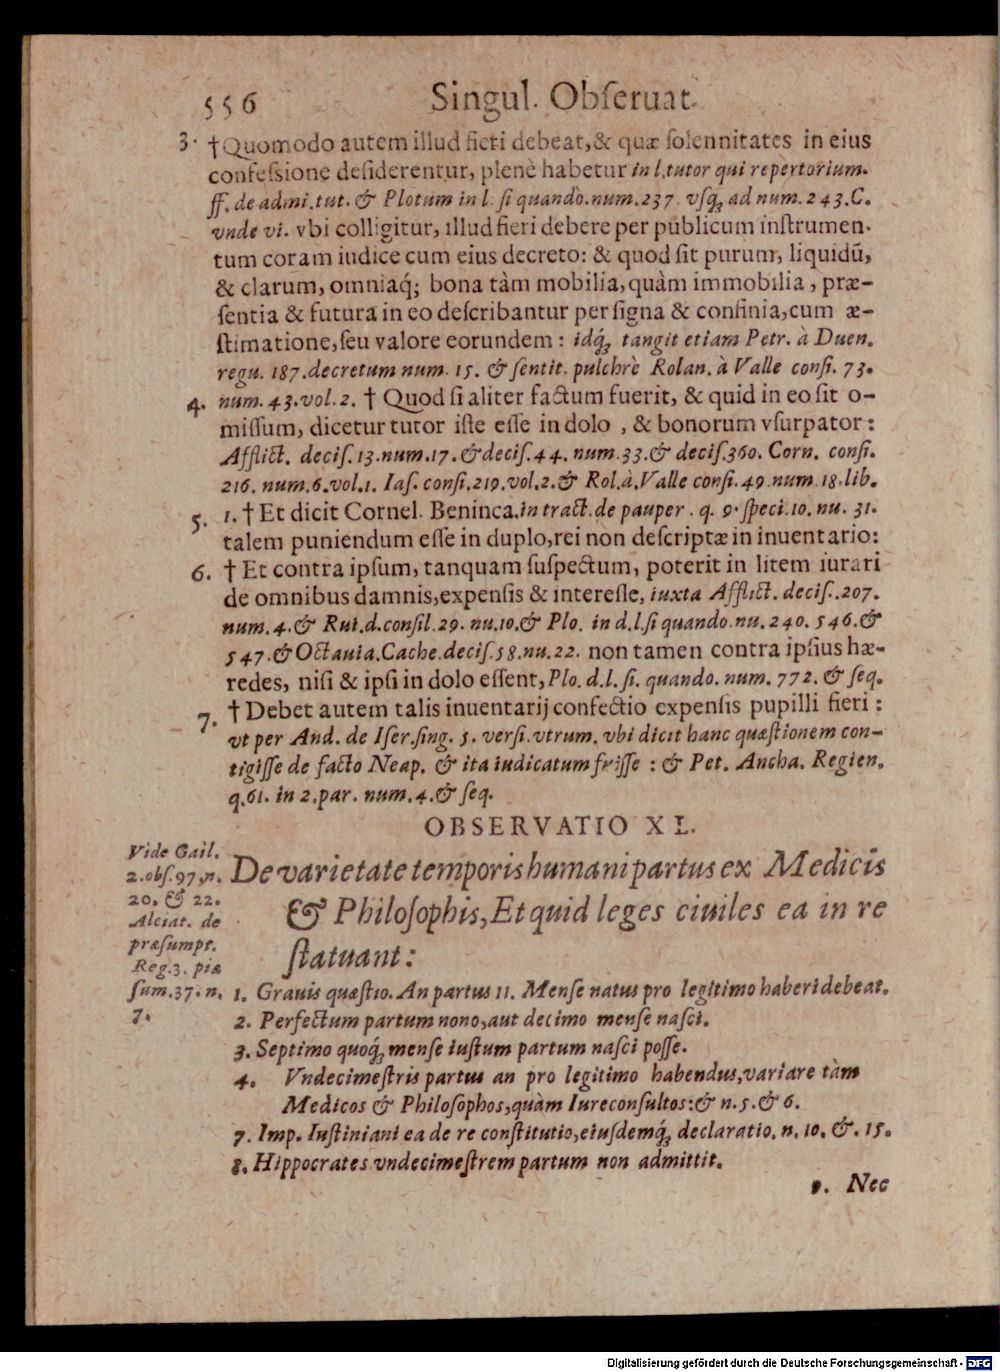 556 Singul. Obſeruat.
3. †Quomodo autem illud fieti debeat,& quæ ſolennitates in eius
confeſsione deſiderentur, plenè habetur in l.tutor qui repertorium.
ff. de admi.tut. & Plotum in l. ſi quando.num.237. vſq́ꝫ ad num.243.C.
vnde vi. vbi colligitur, illud fieri debere per publicum inſtrumen-
tum coram iudice cum eius decreto: & quod ſit purum, liquidū,
& clarum, omniaq́; bona tàm mobilia,quàm immobilia, præ-
ſentia & futura in eo deſcribantur per ſigna & confinia,cum æ-
ſtimatione,ſeu valore eorundem: idq́ꝫ tangit etiam Petr. à Duen.
regu. 187.decretum num. 15. & ſentit. pulchrè Rolan. à Valle conſi. 73.
4. num. 43.vol.2. † Quod ſi aliter factum fuerit, & quid in eo ſit o-
miſſum, dicetur tutor iſte eſſe in dolo, & bonorum vſurpator:
Afflict. deciſ.13.num.17.& deciſ.44. num.33.& deciſ.360. Corn. conſi.
216. num.6.vol.1. Iaſ. conſi.219.vol.2.& Rol.à.Valle conſi.49.num.18.lib.
5. 1. †Et dicit Cornel. Beninca.in tract.de pauper. q. 9. ſpeci.10. nu. 31.
talem puniendum eſſe in duplo,rei non deſcriptæ in inuentario:
6. †Et contra ipſum, tanquam ſuſpectum, poterit in litem iurari
de omnibus damnis,expenſis & intereſſe, iuxta Afflict. deciſ.207.
num.4.& Rui.d.conſil.29. nu.10.& Plo. in d.l.ſi quando.nu.240. 546.&
547.& Octauia.Cache.deciſ.58.nu.22. non tamen contra ipſius hæ-
redes, niſi & ipſi in dolo eſſent,Plo. d.l. ſi. quando. num. 772. & ſeq.
7. †Debet autem talis inuentarij confectio expenſis pupilli fieri:
vt per And. de Iſer.ſing. 5. verſi.vtrum. vbi dicit hanc quæſtionem con-
tigiſſe de facto Neap. & ita iudicatum friſſe: & Pet. Ancha. Regien.
q.61. in 2.par. num.4.& ſeq.
OBSERVATIO XL.
Vide Gail.
2.obſ.97.n.
20. & 22.
Alciat. de
præſumpt.
Reg.3. piæ
ſum.37.n.
7.
De varietate temporis humani partus ex Medicis
& Philoſophis,Et quid leges ciuiles ea in re
ſtatuant:
1. Grauis quæſtio. An partus 11. Menſe natus pro legitimo haberi debeat.
2. Perfectum partum nono,aut decimo menſe naſci.
3. Septimo quoq́ꝫ menſe iuſtum partum naſci poſſe.
4. Vndecimeſtris partus an pro legitimo habendus,variare tàm
Medicos & Philoſophos,quàm Iureconſultos:& n.5.& 6.
7. Imp. Iuſtiniani ea de re conſtitutio,eiuſdemq́ꝫ declaratio. n. 10. &. 15.
8. Hippocrates vndecimeſtrem partum non admittit.
9. Nec
Digitalisierung gefördert durch die Deutsche Forschungsgemeinschaft - DFG